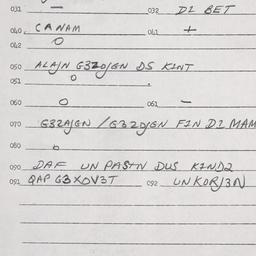 031 — 032 DI BET
040 CANAM 041 +
042 O
050 ALAJN G3ZOJGN DS KINT
051 O
060 O 061 —
070 G3ZAJGN / G3ZOJGN FIN DI MAM
080 O
090 DAF UN PASTN DUS KIND2
091 QAP G3XOV3T 092 UNKORJ3N